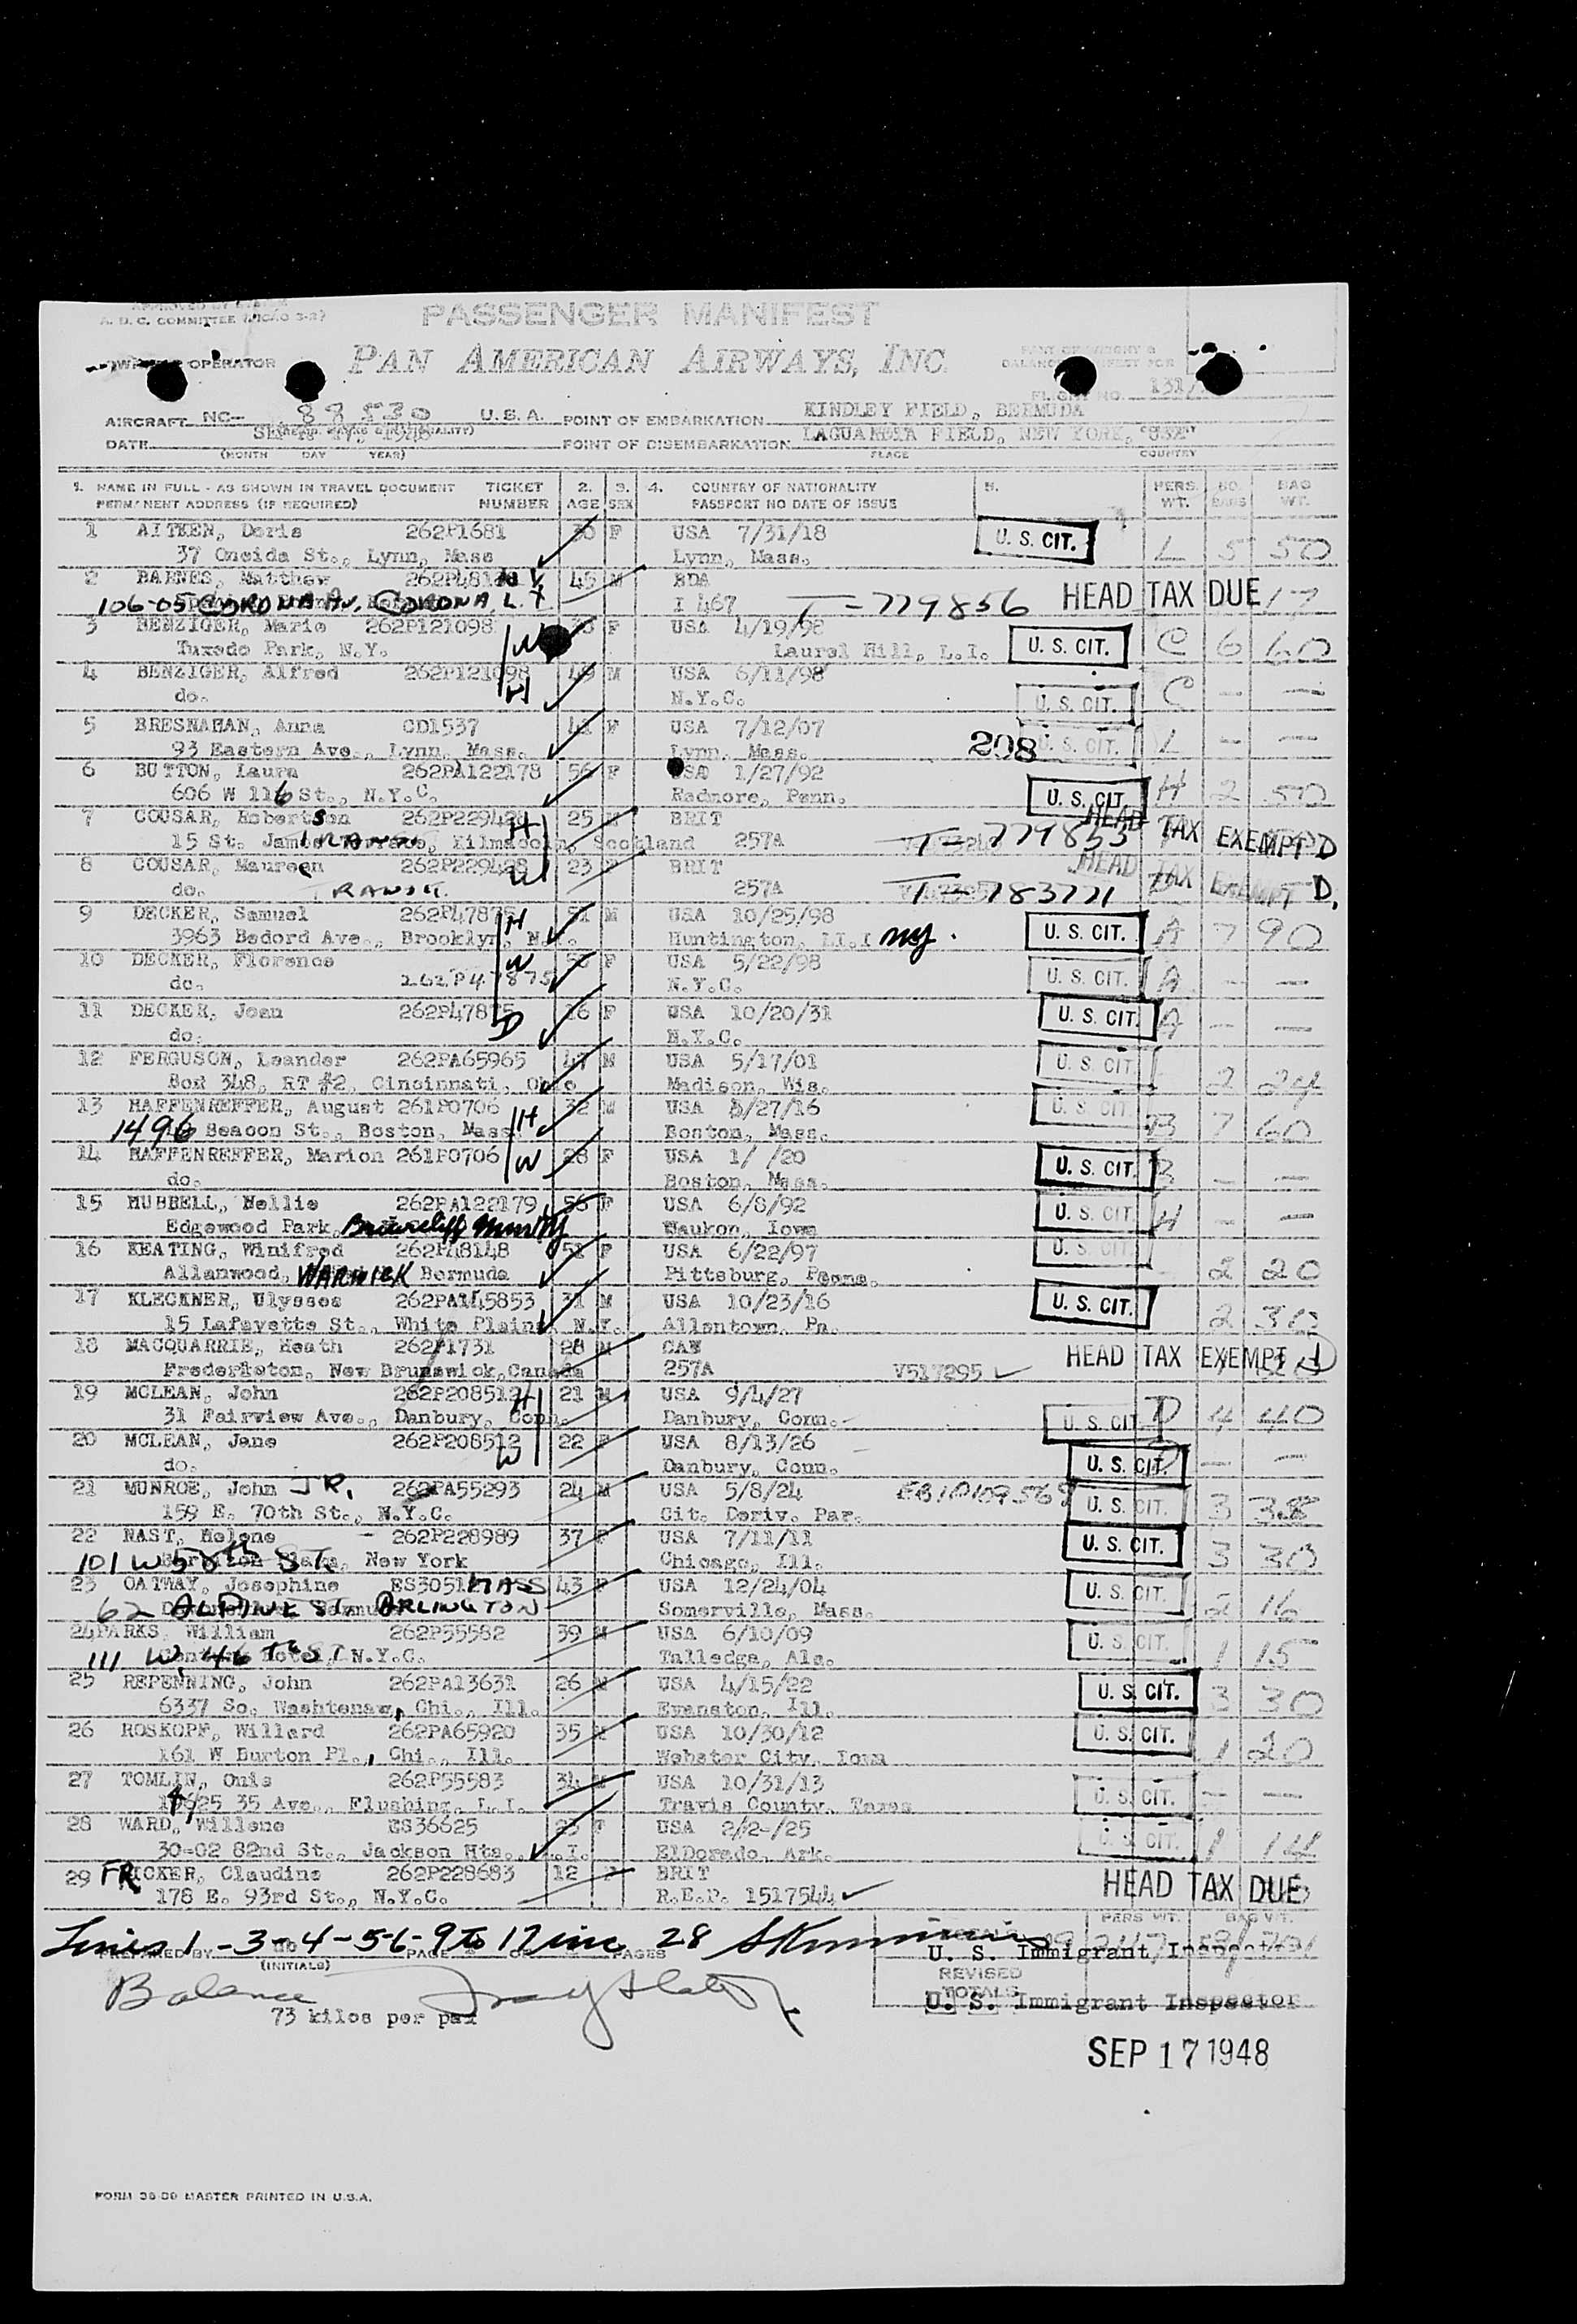 A. D. C. COMMITTEE
PASSENGER MANIFEST
OPERATOR PAN AMERICAN AIRWAYS, INC.
FLIGHT NO. 131/
AIRCRAFT NC- 88530 U.S.A. POINT OF EMBARKATION KINDLEY FIELD, BERMUDA
DATE 1948 POINT OF DISEMBARKATION LAGUARDIA FIELD, NEW YORK, "USA"
(MONTH DAY YEAR) PLACE COUNTRY
1. NAME IN FULL - AS SHOWN IN TRAVEL DOCUMENT TICKET 2. 3. 4. COUNTRY OF NATIONALITY 5. PERS. NO. BAG
PERMANENT ADDRESS (IF REQUIRED) NUMBER AGE SEX PASSPORT NO DATE OF ISSUE WT. BAGS WT.
1 AITKEN, Doris 262P1681 30 F USA 7/31/18 U. S. CIT.
37 Oneida St., Lynn, Mass Lynn, Mass. L 5 50
2 BARNES, Matthew 45 M BDA HEAD TAX DUE 17
106-05 CORONA AV. CORONA, L. I 467 T-779856
3 BENZIGER, Marie 262P121098 W F USA 4/19/98
Tuxedo Park, N.Y. Laurel Hill, L.I. U. S. CIT. C 6 60
4 BENZIGER, Alfred 262P121098 49 M USA 6/11/98
do. H N.Y.C. U. S. CIT. C - -
5 BRESNAHAN, Anna CD1537 41 F USA 7/12/07
93 Eastern Ave., Lynn, Mass. Lynn, Mass. 208 U. S. CIT. L - -
6 BUTTON, Laura 262PA122178 56 F USA 1/27/92
606 W 116 St., N.Y.C. Radmore, Penn. U. S. CIT. H 2 50
7 COUSAR, Robertson 262P229428 H 25 BRIT HEAD TAX EXEMPT D
15 St. James Kilmacolm, Scotland 257A T-779853
8 COUSAR, Maureen 262P229428 W 23 F BRIT HEAD TAX EXEMPT D.
do. TRANSIT. 257A T-783771
9 DECKER, Samuel 262P47875 H 51 M USA 10/25/98
3963 Bedord Ave., Brooklyn, N.Y. Huntington, L.I NY. U. S. CIT. A 7 90
10 DECKER, Florence W F USA 5/22/98
do. 262P47875 N.Y.C. U. S. CIT. A - -
11 DECKER, Joan 262P47875 16 F USA 10/20/31
do. D N.Y.C. U. S. CIT. A - -
12 FERGUSON, Leander 262PA65965 47 M USA 5/17/01 U. S. CIT.
Box 348, RT #2, Cincinnati, Ohio Madison, Wis. 2 24
13 HAFFENREFFER, August 261P0706 H 32 M USA 8/27/16 U. S. CIT.
1496 Beacon St., Boston, Mass. Boston, Mass. B 7 60
14 HAFFENREFFER, Marion 261P0706 W 28 F USA 1/ /20 U. S. CIT.
do. Boston, Mass. B - -
15 HUBBELL, Nellie 262PA122179 56 F USA 6/8/92 U. S. CIT.
Edgewood Park, Briarcliff Manor NY Waukon, Iowa H - -
16 KEATING, Winifred 262P48148 51 F USA 6/22/97 U. S. CIT.
Allanwood, WARWICK Bermuda Pittsburg, Penna. 2 20
17 KLECKNER, Ulysses 262PA145853 31 M USA 10/23/16 U. S. CIT.
15 Lafayette St., White Plains, N.Y. Allentown, Pa. 2 30
18 MACQUARRIE, Heath 262P1731 28 M CAN HEAD TAX EXEMPT D
Fredericton, New Brunswick, Canada 257A V517295
19 MCLEAN, John 262P208512 H 21 M USA 9/4/27
31 Fairview Ave., Danbury, Conn. Danbury, Conn. U. S. CIT. D 4 40
20 MCLEAN, Jane 262P208512 W 22 F USA 8/13/26
do. Danbury, Conn. U. S. CIT. - -
21 MUNROE, John JR. 262PA55293 24 M USA 5/8/24
159 E. 70th St., N.Y.C. Cit. Deriv. Par. U. S. CIT. 3 38
22 NAST, Helene 262P228989 37 F USA 7/11/11 U. S. CIT.
101 W 58th ST. New York Chicago, Ill. 3 30
23 OATWAY, Josephine MASS 43 F USA 12/24/04 U. S. CIT.
62 ALPINE ST. ARLINGTON Somerville, Mass. 2 16
24 PARKS, William 262P55582 39 M USA 6/10/09 U. S. CIT.
111 W. 46th ST N.Y.C. Talledga, Ala. 1 15
25 REPENNING, John 262PA13631 26 M USA 4/15/22 U. S. CIT.
6337 So. Washtenaw, Chi., Ill. Evanston, Ill. 3 30
26 ROSKOPF, Willard 262PA65920 35 USA 10/30/12 U. S. CIT.
161 W Burton Pl., Chi., Ill. Webster City, Iowa 1 20
27 TOMLIN, Onis 262P55583 34 M USA 10/31/13 U. S. CIT.
35 Ave., Flushing, L.I. Travis County, Texas - -
28 WARD, Willene GS36625 23 F USA 2/2-/25 U. S. CIT.
30-02 82nd St., Jackson Hts., L.I. ElDorado, Ark. 1 14
29 FRICKER, Claudine 262P228683 12 F BRIT HEAD TAX DUE
178 E. 93rd St., N.Y.C. R.E.P. 1517544
PERS WT. BAG WT.
Lines 1-3-4-5-6-9 to 17 inc 28
PREPARED BY (INITIALS) PAGE OF PAGES TOTALS U. S. Immigrant Inspector
Balance REVISED TOTALS U. S. Immigrant Inspector
73 kilos per pax
SEP 17 1948
FORM 30-50 MASTER PRINTED IN U.S.A.